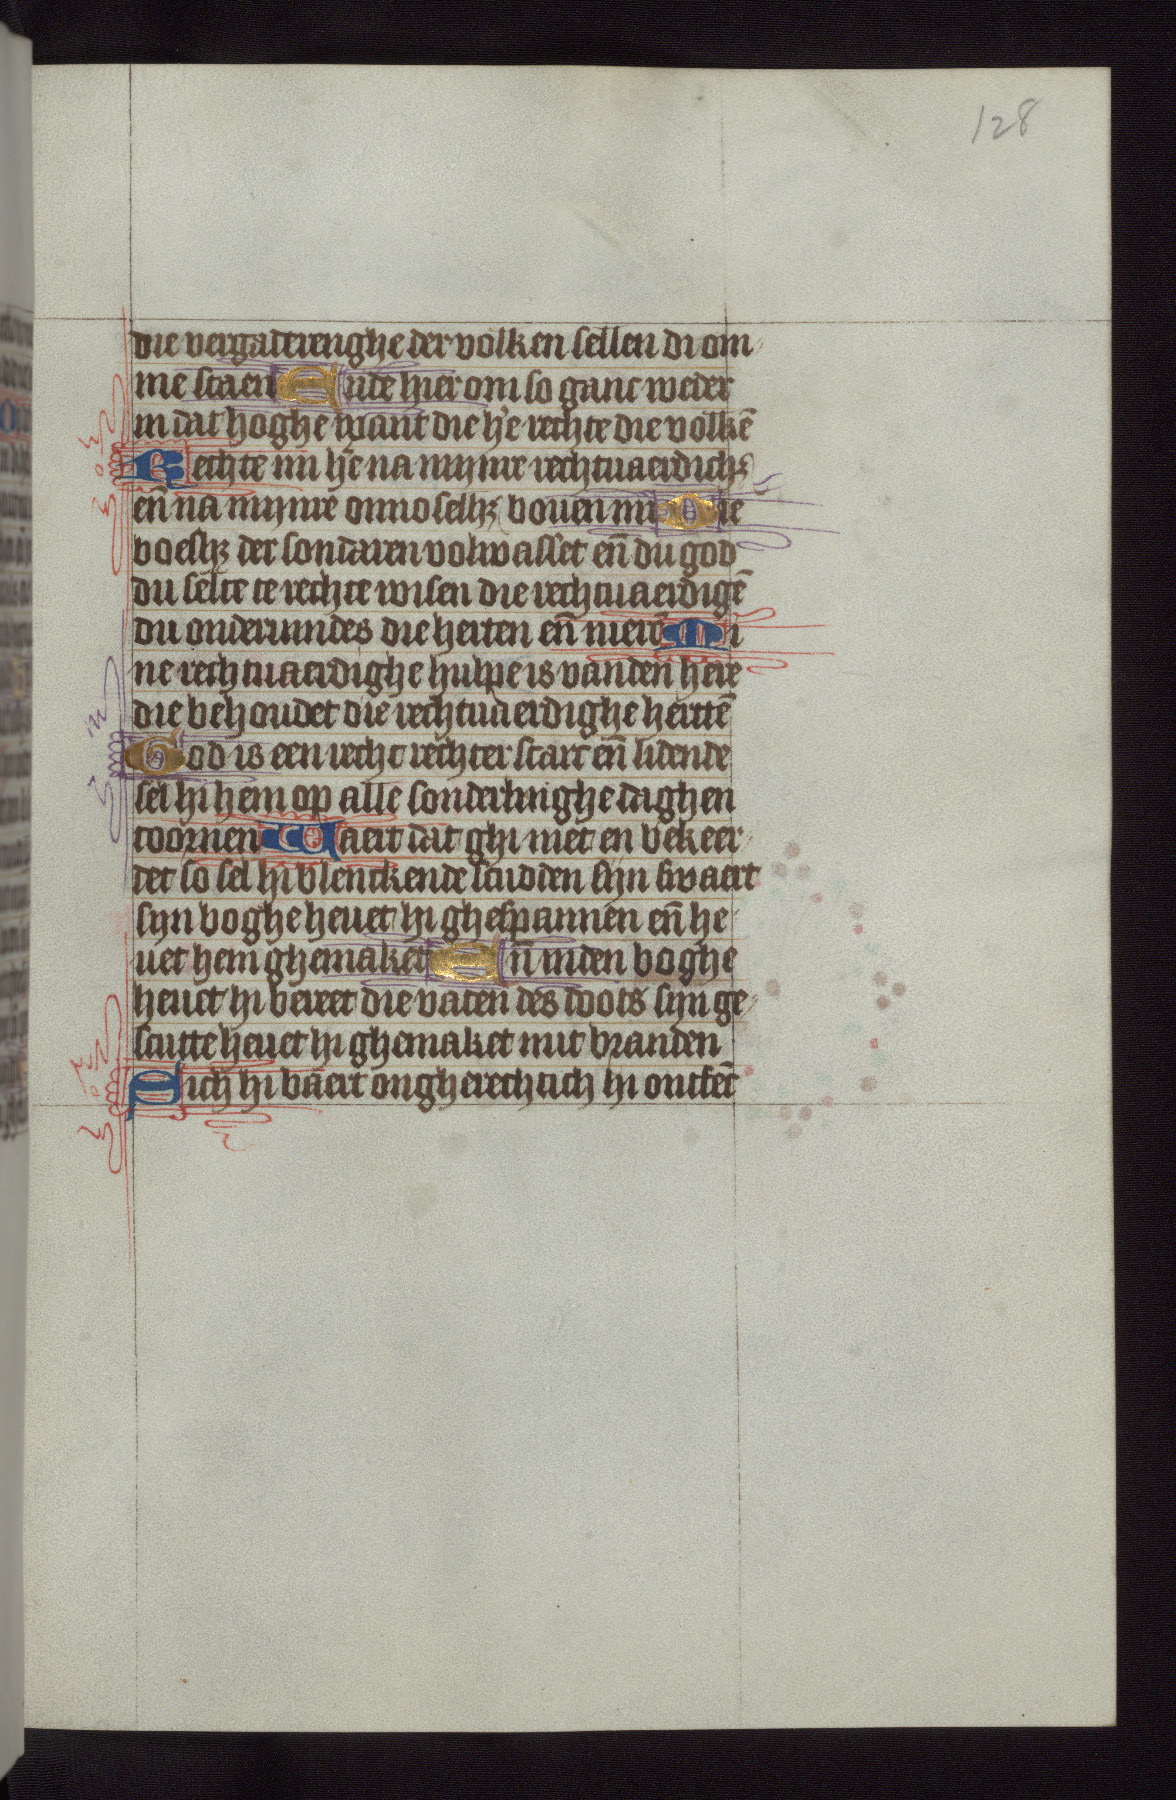 128
die vergaderenghe der volken sellen di om
me staen Ende hier om so ganc weder
in dat hoghe want die h'e rechte die volkē
Rechte mi h'e na mijnre rechtuaerdichꝫ
eñ na mijnre onnoselhꝫ bouen mi Die
boeshꝫ der sondaren volwasset eñ du god
du selte te rechte wisen die rechtuaerdigē
du onderuindes die herten eñ nierē Mi
ne rechtuaerdighe hulpe is vanden here
die behoudet die rechtuaerdighe hertē
God is een recht rechter starc eñ lidende
sel hi hem op alle sonderlinghe daghen
toornen Waert dat ghi niet en bekeer
det so sel hi blenckende scudden sijn swaert
sijn boghe heuet hi ghespannen eñ he
uet hem ghemaket Eñ inden boghe
heuet hi bereet die vaten des doots sijn ge
scutte heuet hi ghemaket mit branden
Sich hi baert ongherechtich hi ontfēc